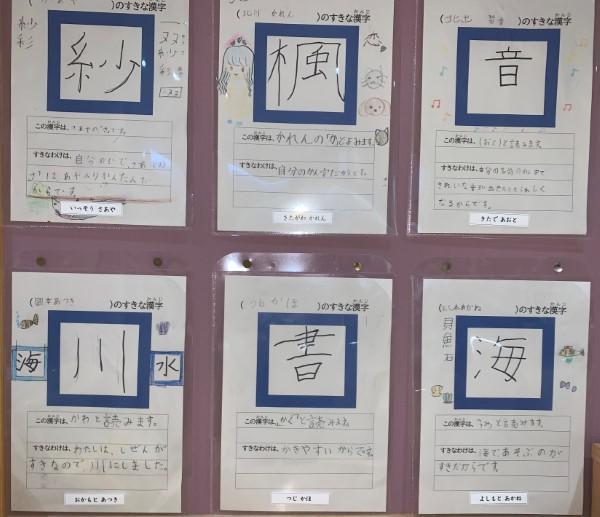 紗
彩
紗
この漢字は、
すきなわけは、自分の
からです。
いっそう さあや
(北川 かれん )のすきな漢字
楓
この漢字は、かれんの「か」とよみます。
すきなわけは、自分のかん字だからです。
きたがわ かれん
のすきな漢字
音
この漢字は、(おと)と読みます。
すきなわけは、自分の名前の
なるからです。
きたで あおと
(岡本あつき )のすきな漢字
海
川
水
この漢字は、かわと読みます。
すきなわけは、わたしは、しぜんが
すきなので川にしました。
おかもと あつき
(つじ かほ )のすきな漢字
書
この漢字は、「かく」と読みます。
すきなわけは、かきやすいからです。
つじ かほ
(よしもとあかね )のすきな漢字
貝
魚
石
海
この漢字は、うみと読みます。
すきなわけは、海であそぶのが
すきだからです。
よしもと あかね